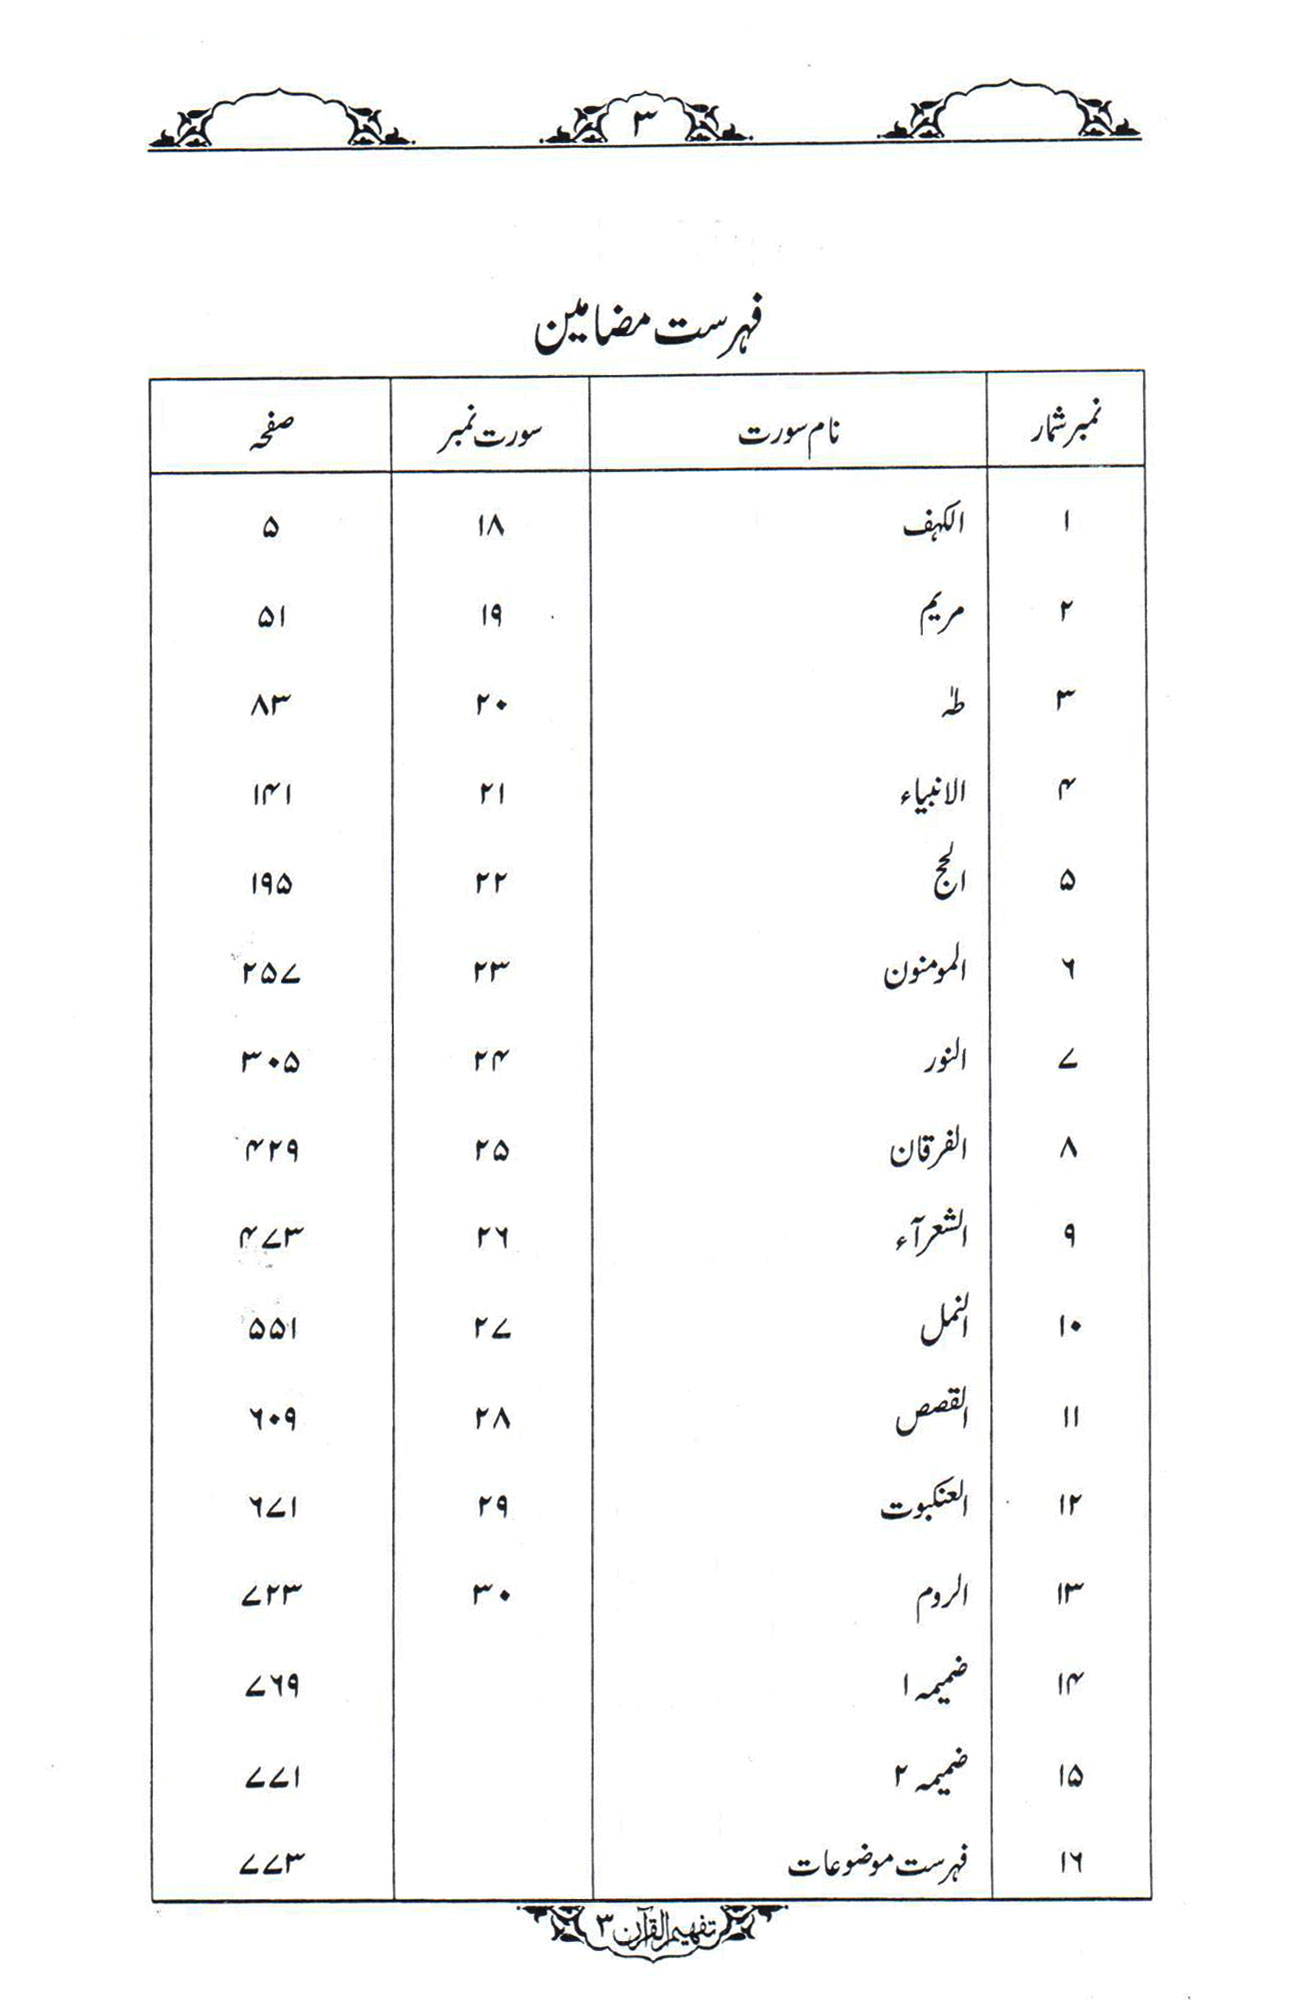 ۳
فہرست مضامین
نمبر شمار نام سورت سورت نمبر صفحہ
۱ الکہف ۱۸ ۵
۲ مریم ۱۹ ۵۱
۳ طٰہٰ ۲۰ ۸۳
۴ الانبیاء ۲۱ ۱۴۱
۵ الحج ۲۲ ۱۹۵
۶ المومنون ۲۳ ۲۵۷
۷ النور ۲۴ ۳۰۵
۸ الفرقان ۲۵ ۴۲۹
۹ الشعرآء ۲۶ ۴۷۳
۱۰ النمل ۲۷ ۵۵۱
۱۱ القصص ۲۸ ۶۰۹
۱۲ العنکبوت ۲۹ ۶۷۱
۱۳ الروم ۳۰ ۷۲۳
۱۴ ضمیمہ ۱ ۷۶۹
۱۵ ضمیمہ ۲ ۷۷۱
۱۶ فہرست موضوعات ۷۷۳
تفہیم القرآن ۳